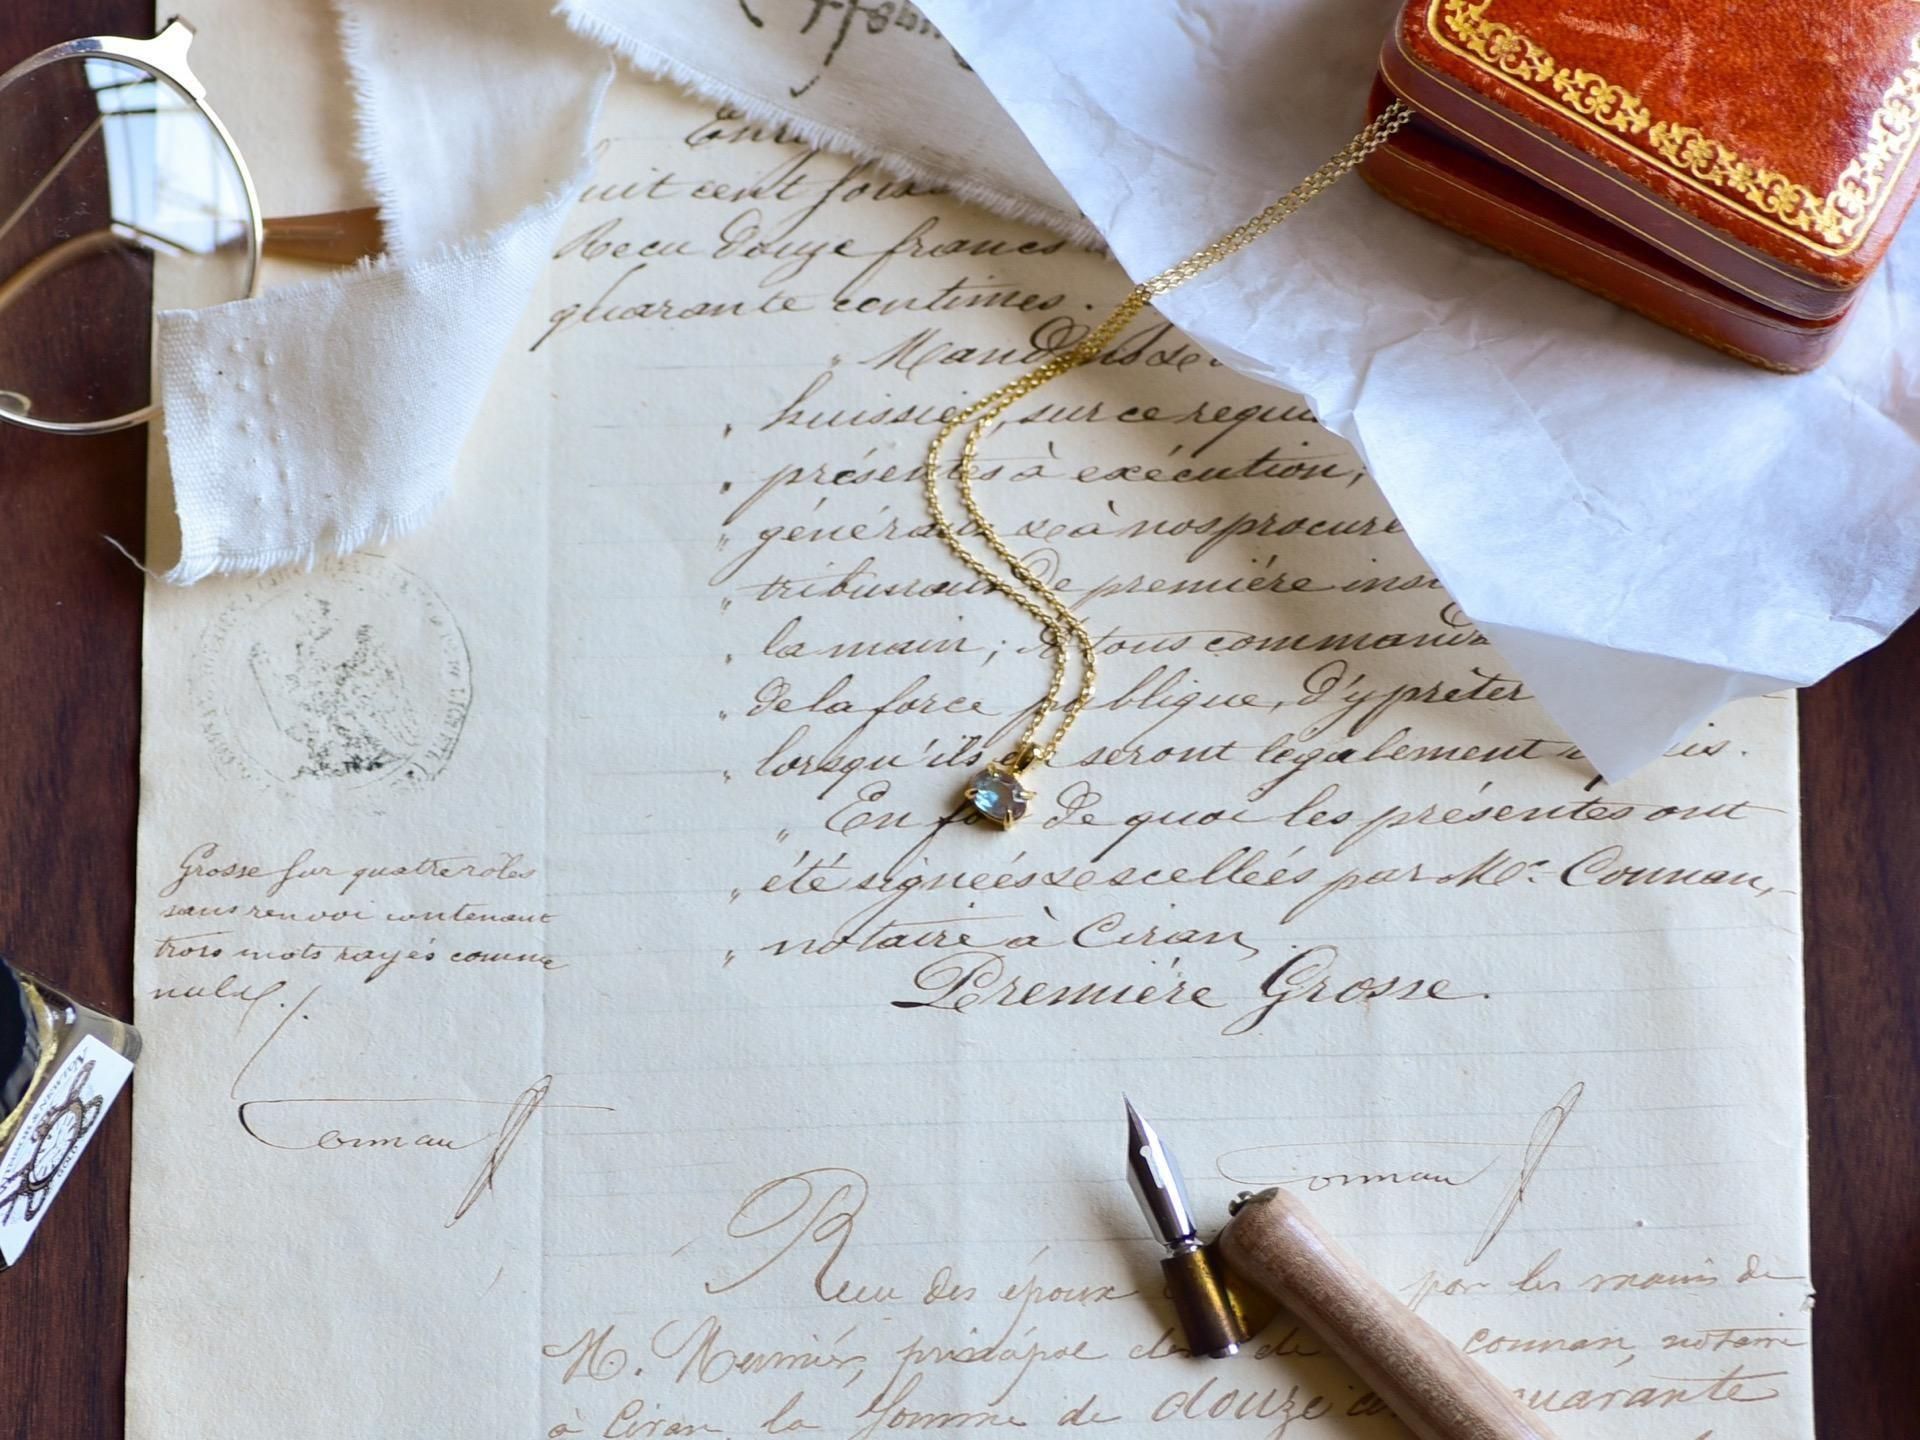 Enr
uit cent soix
Recu Douze francs
quarante centimes.
„ Mandons &
„ huissiers, sur ce requis
„ présentes à exécution;
„ généraux & à nos procure
„ tribunaux de première inst
„ la main; & à tous commanda
„ de la force publique, d'y prêter
„ lorsqu'ils en seront légalement requis.
„ En foi de quoi les présentes ont
„ été signées & scellées par Me. Connan,
„ notaire à Ciran,
Première Grosse.
Grosse sur quatre rôles
sans renvoi contenant
trois mots rayés comme
nuls./.
Connan
Connan
Recu des époux par les mains de
M. Meunier, principal clerc de connan, notaire
à Ciran, la somme de douze ce quarante
GOLD